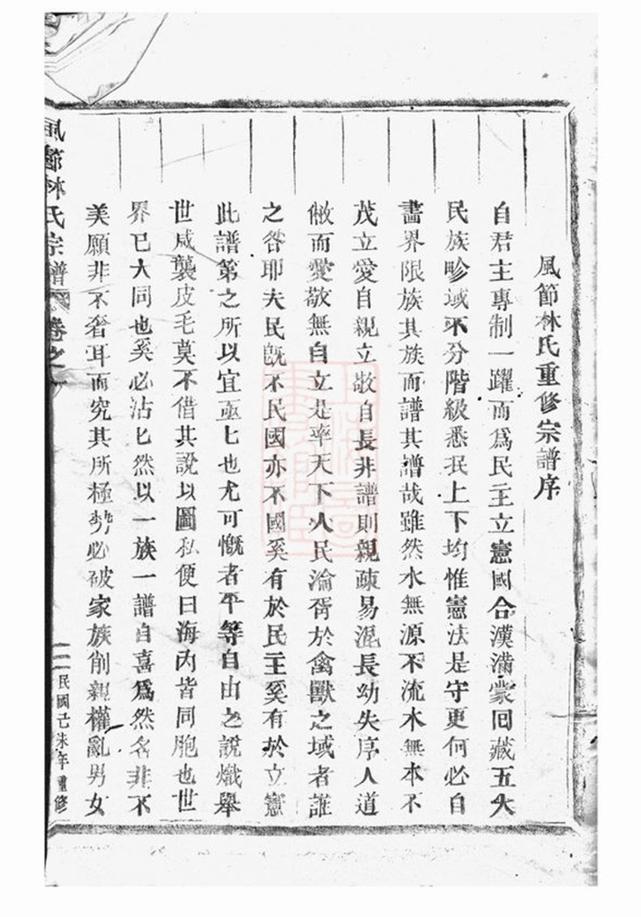 風節林氏重修宗譜序
自君主專制一躍而爲民主立憲國合漢滿蒙回藏五大
民族畛域不分階級悉泯上下均惟憲法是守更何必自
畵界限族其族而譜其譜哉雖然水無源不流木無本不
茂立愛自親立敬自長非譜則親疎易混長幼失序人道
敝而愛敬無自立是率天下人民淪胥於禽獸之域者誰
之咎耶夫民旣不民國亦不國奚有於民主奚有於立憲
此譜第之所以宜亟亟也尤可慨者平等自由之說熾舉
世咸襲皮毛莫不借其說以圖私便曰海內皆同胞也世
界已大同也奚必沾沾然以一族一譜自喜爲然名非不
美願非不奢耳而究其所極勢必破家族削親權亂男女
風節林氏宗譜 卷之一
一 民國己未年重修